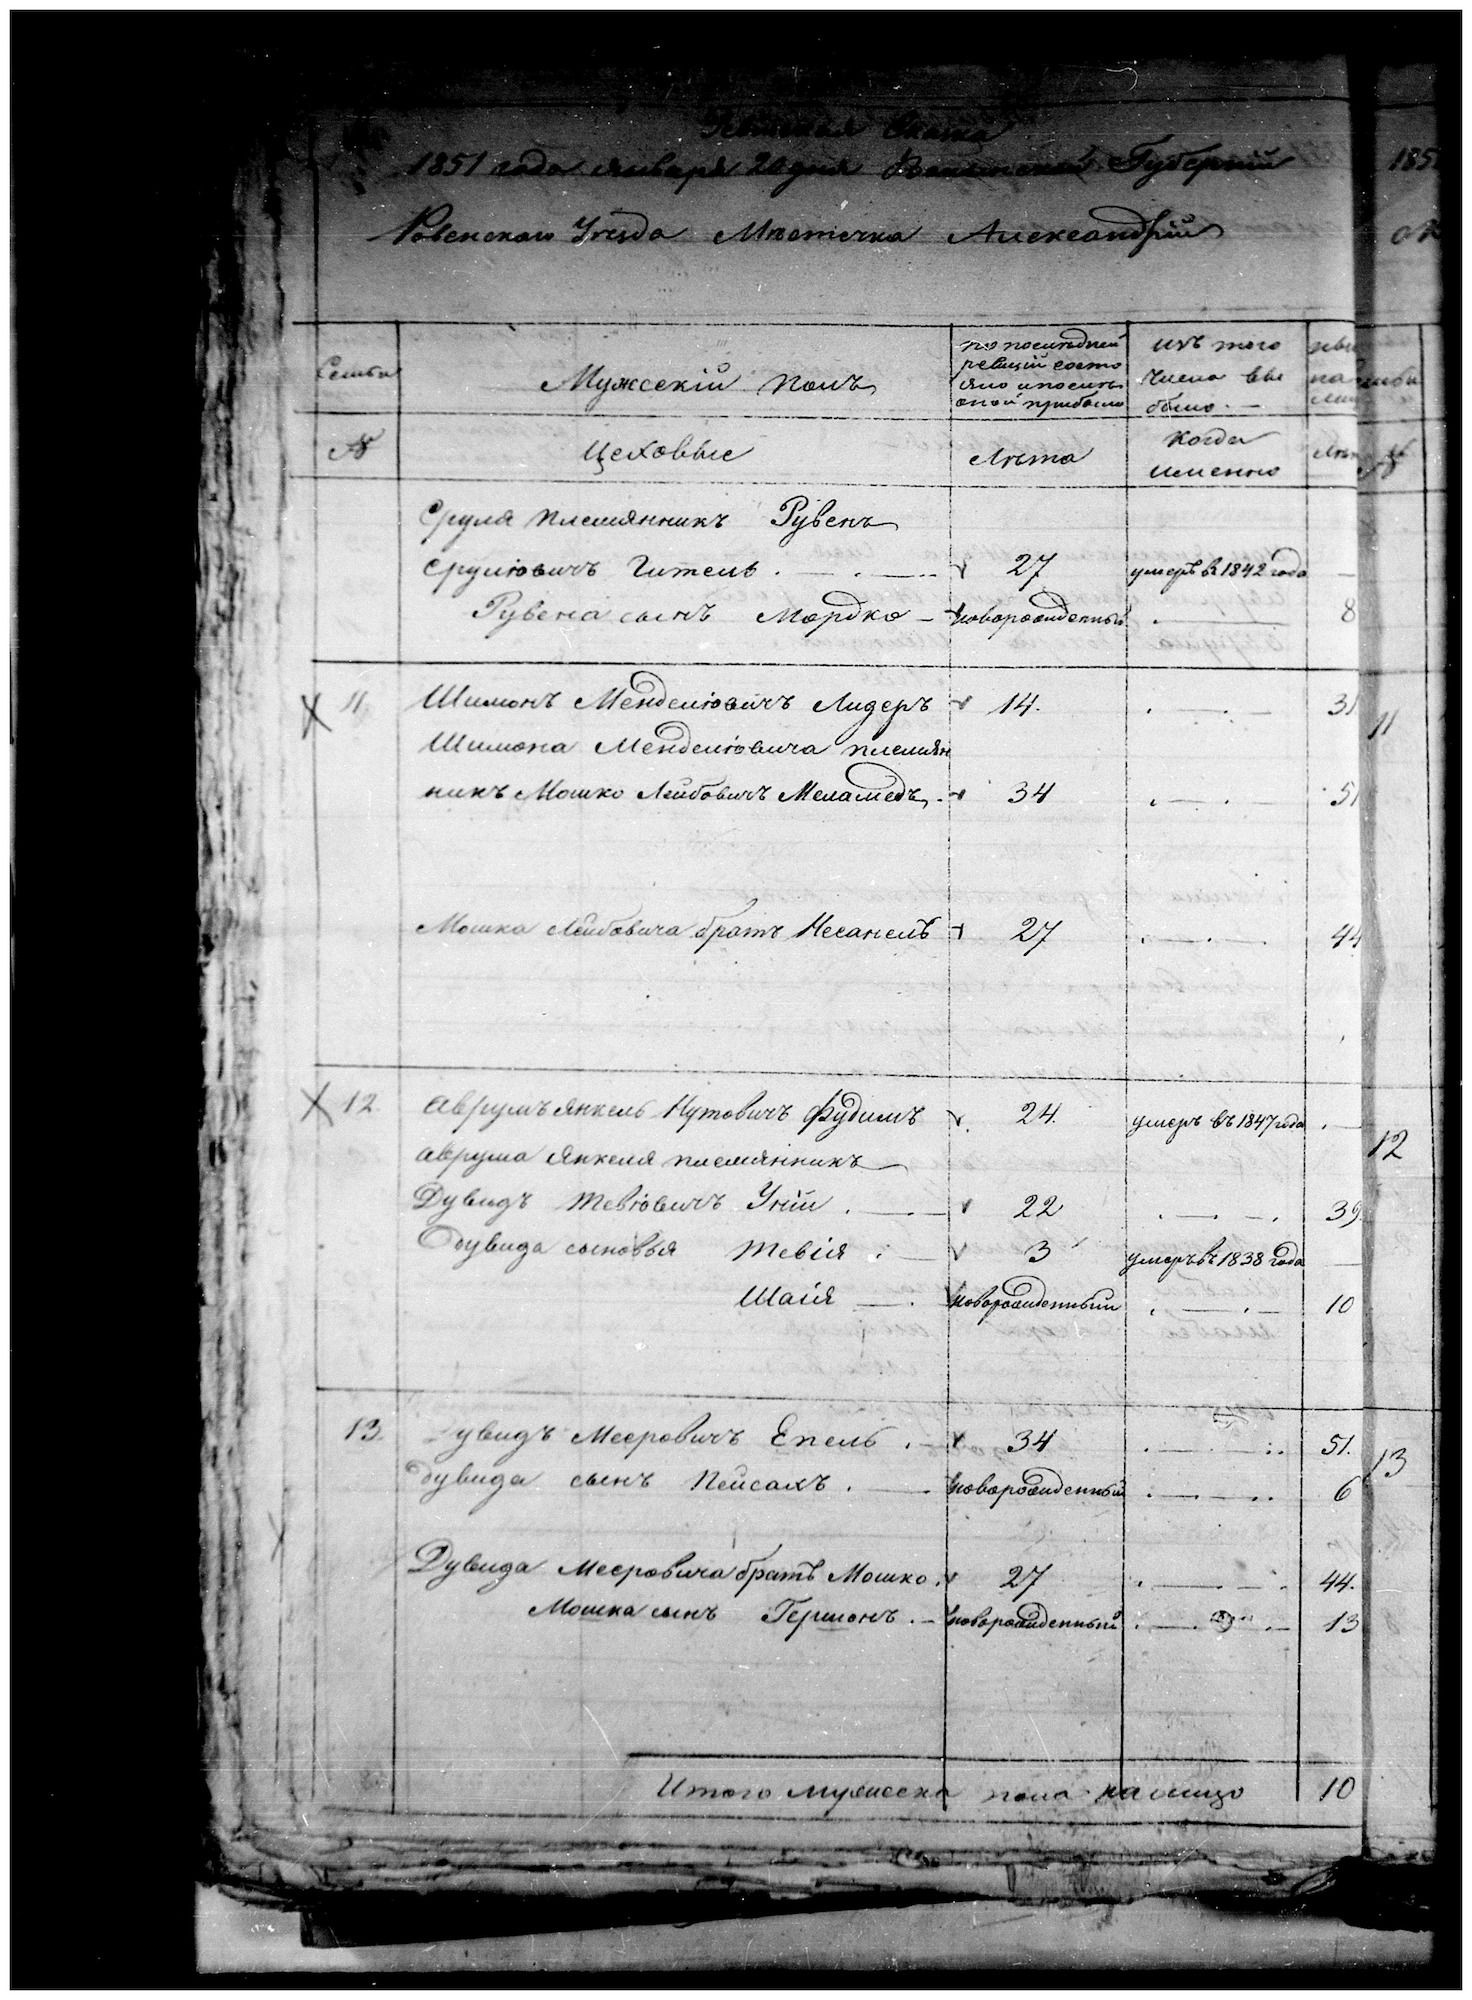 Ревизская Сказка
1851 года января 20 дня Волынской Губерніи
185
Ровенскаго Уѣзда Мѣстечка Александріи
Семьи
Мужескій полъ
по послѣдней ревизіи состояло и послѣ оной прибыло
изъ того числа выбыло.
№
Цеховые
Лѣта
когда именно
Сруля племянникъ Рувенъ
Срулiовичъ Гитель 27 умеръ въ 1842 года —
Рувена сынъ Мордко — новорожденный 8
11 Шимонъ Менделіовичъ Лидеръ 14. 31
11
Шимона Менделіовича племян
никъ Мошко Лейбовичъ Меламедъ. 34 51
Мошка Лейбовича братъ Несанель 27 44
12. Аврумъ Янкель Нутовичъ Фудимъ 24. умеръ въ 1847 года
12
Аврума Янкеля племянникъ
Дувидъ Тевіовичъ Уній 22 39
Дувида сыновья Тевія 3 умеръ въ 1838 года —
Шаія новорожденный 10
13. Дувидъ Мееровичъ Епель 34 51.
13
Дувида сынъ Пейсахъ новорожденный 6
Дувида Мееровича братъ Мошко 27 44.
Мошка сынъ Гершонъ новорожденный 13
Итого мужеска пола на лицо 10